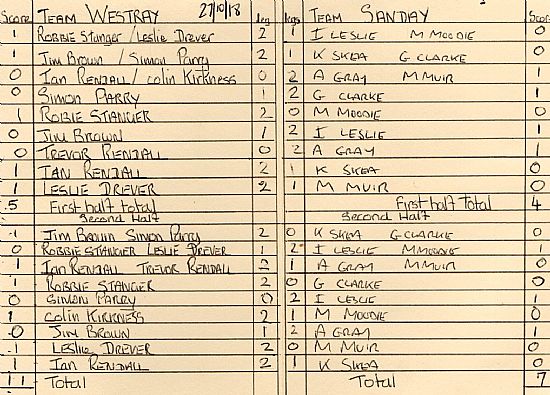 Score TEAM WESTRAY 27/10/18 leg legs TEAM SANDAY Score
1 ROBBIE Stanger / Leslie Drever 2 1 I LESLIE M MOODIE 0
1 Jim Brown / Simon Parry 2 1 K SKEA G CLARKE 0
0 Ian RENDALL / Colin Kirkness 0 2 A GRAY M MUIR 1
0 SIMON PARRY 1 2 G CLARKE 1
1 ROBBIE STANGER 2 0 M MOODIE 0
0 JIM BROWN 1 2 I LESLIE 1
0 TREVOR RENDALL 0 2 A GRAY 1
1 IAN RENDALL 2 1 K SKEA 0
1 LESLIE DREVER 2 1 M MUIR 0
5 First half total First half Total 4
Second Half Second Half
1 Jim Brown Simon Parry 2 0 K SKEA G CLARKE 0
0 ROBBIE STANGER LESLIE DREVER 1 2 I LESLIE M MOODIE 1
1 Ian RENDALL TREVOR RENDALL 2 1 A GRAY M MUIR 0
1 ROBBIE STANGER 2 0 G CLARKE 0
0 SIMON PARRY 0 2 I LESLIE 1
1 COLIN KIRKNESS 2 1 M MOODIE 0
0 JIM BROWN 1 2 A GRAY 1
1 LESLIE DREVER 2 0 M MUIR 0
1 Ian RENDALL 2 1 K SKEA 0
11 Total Total 7